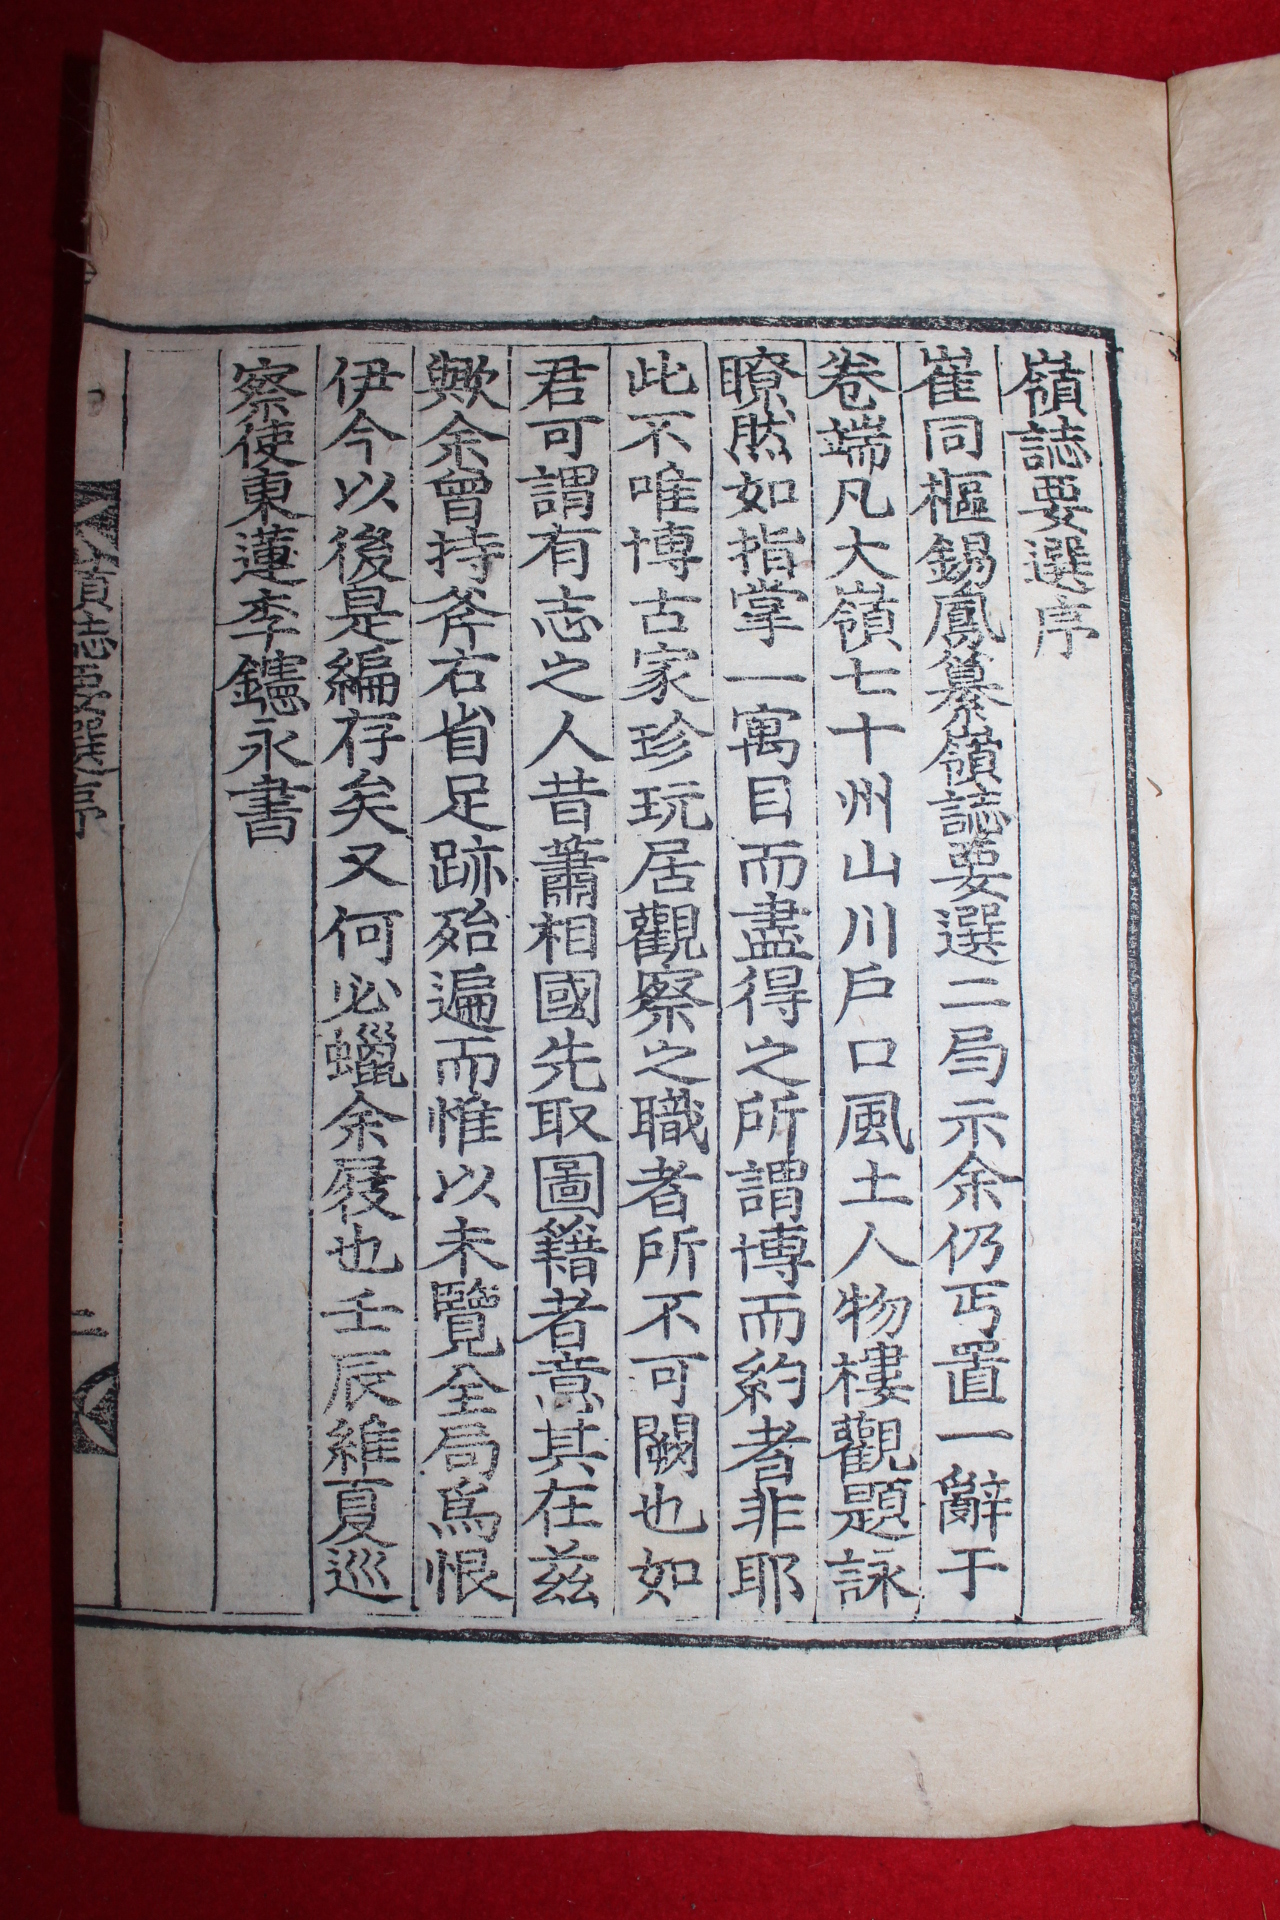 嶺誌要選序
崔同樞錫鳳纂嶺誌要選二局示余仍丐置一辭于
卷端凡大嶺七十州山川戶口風土人物樓觀題詠
瞭然如指掌一寓目而盡得之所謂博而約者非耶
此不唯博古家珍玩居觀察之職者所不可闕也如
君可謂有志之人昔蕭相國先取圖籍者意其在玆
歟余曾持斧右省足跡殆遍而惟以未覽全局爲恨
伊今以後是編存矣又何必蠟余屐也壬辰維夏巡
察使東蓮李𨯶永書
嶺誌要選序
二